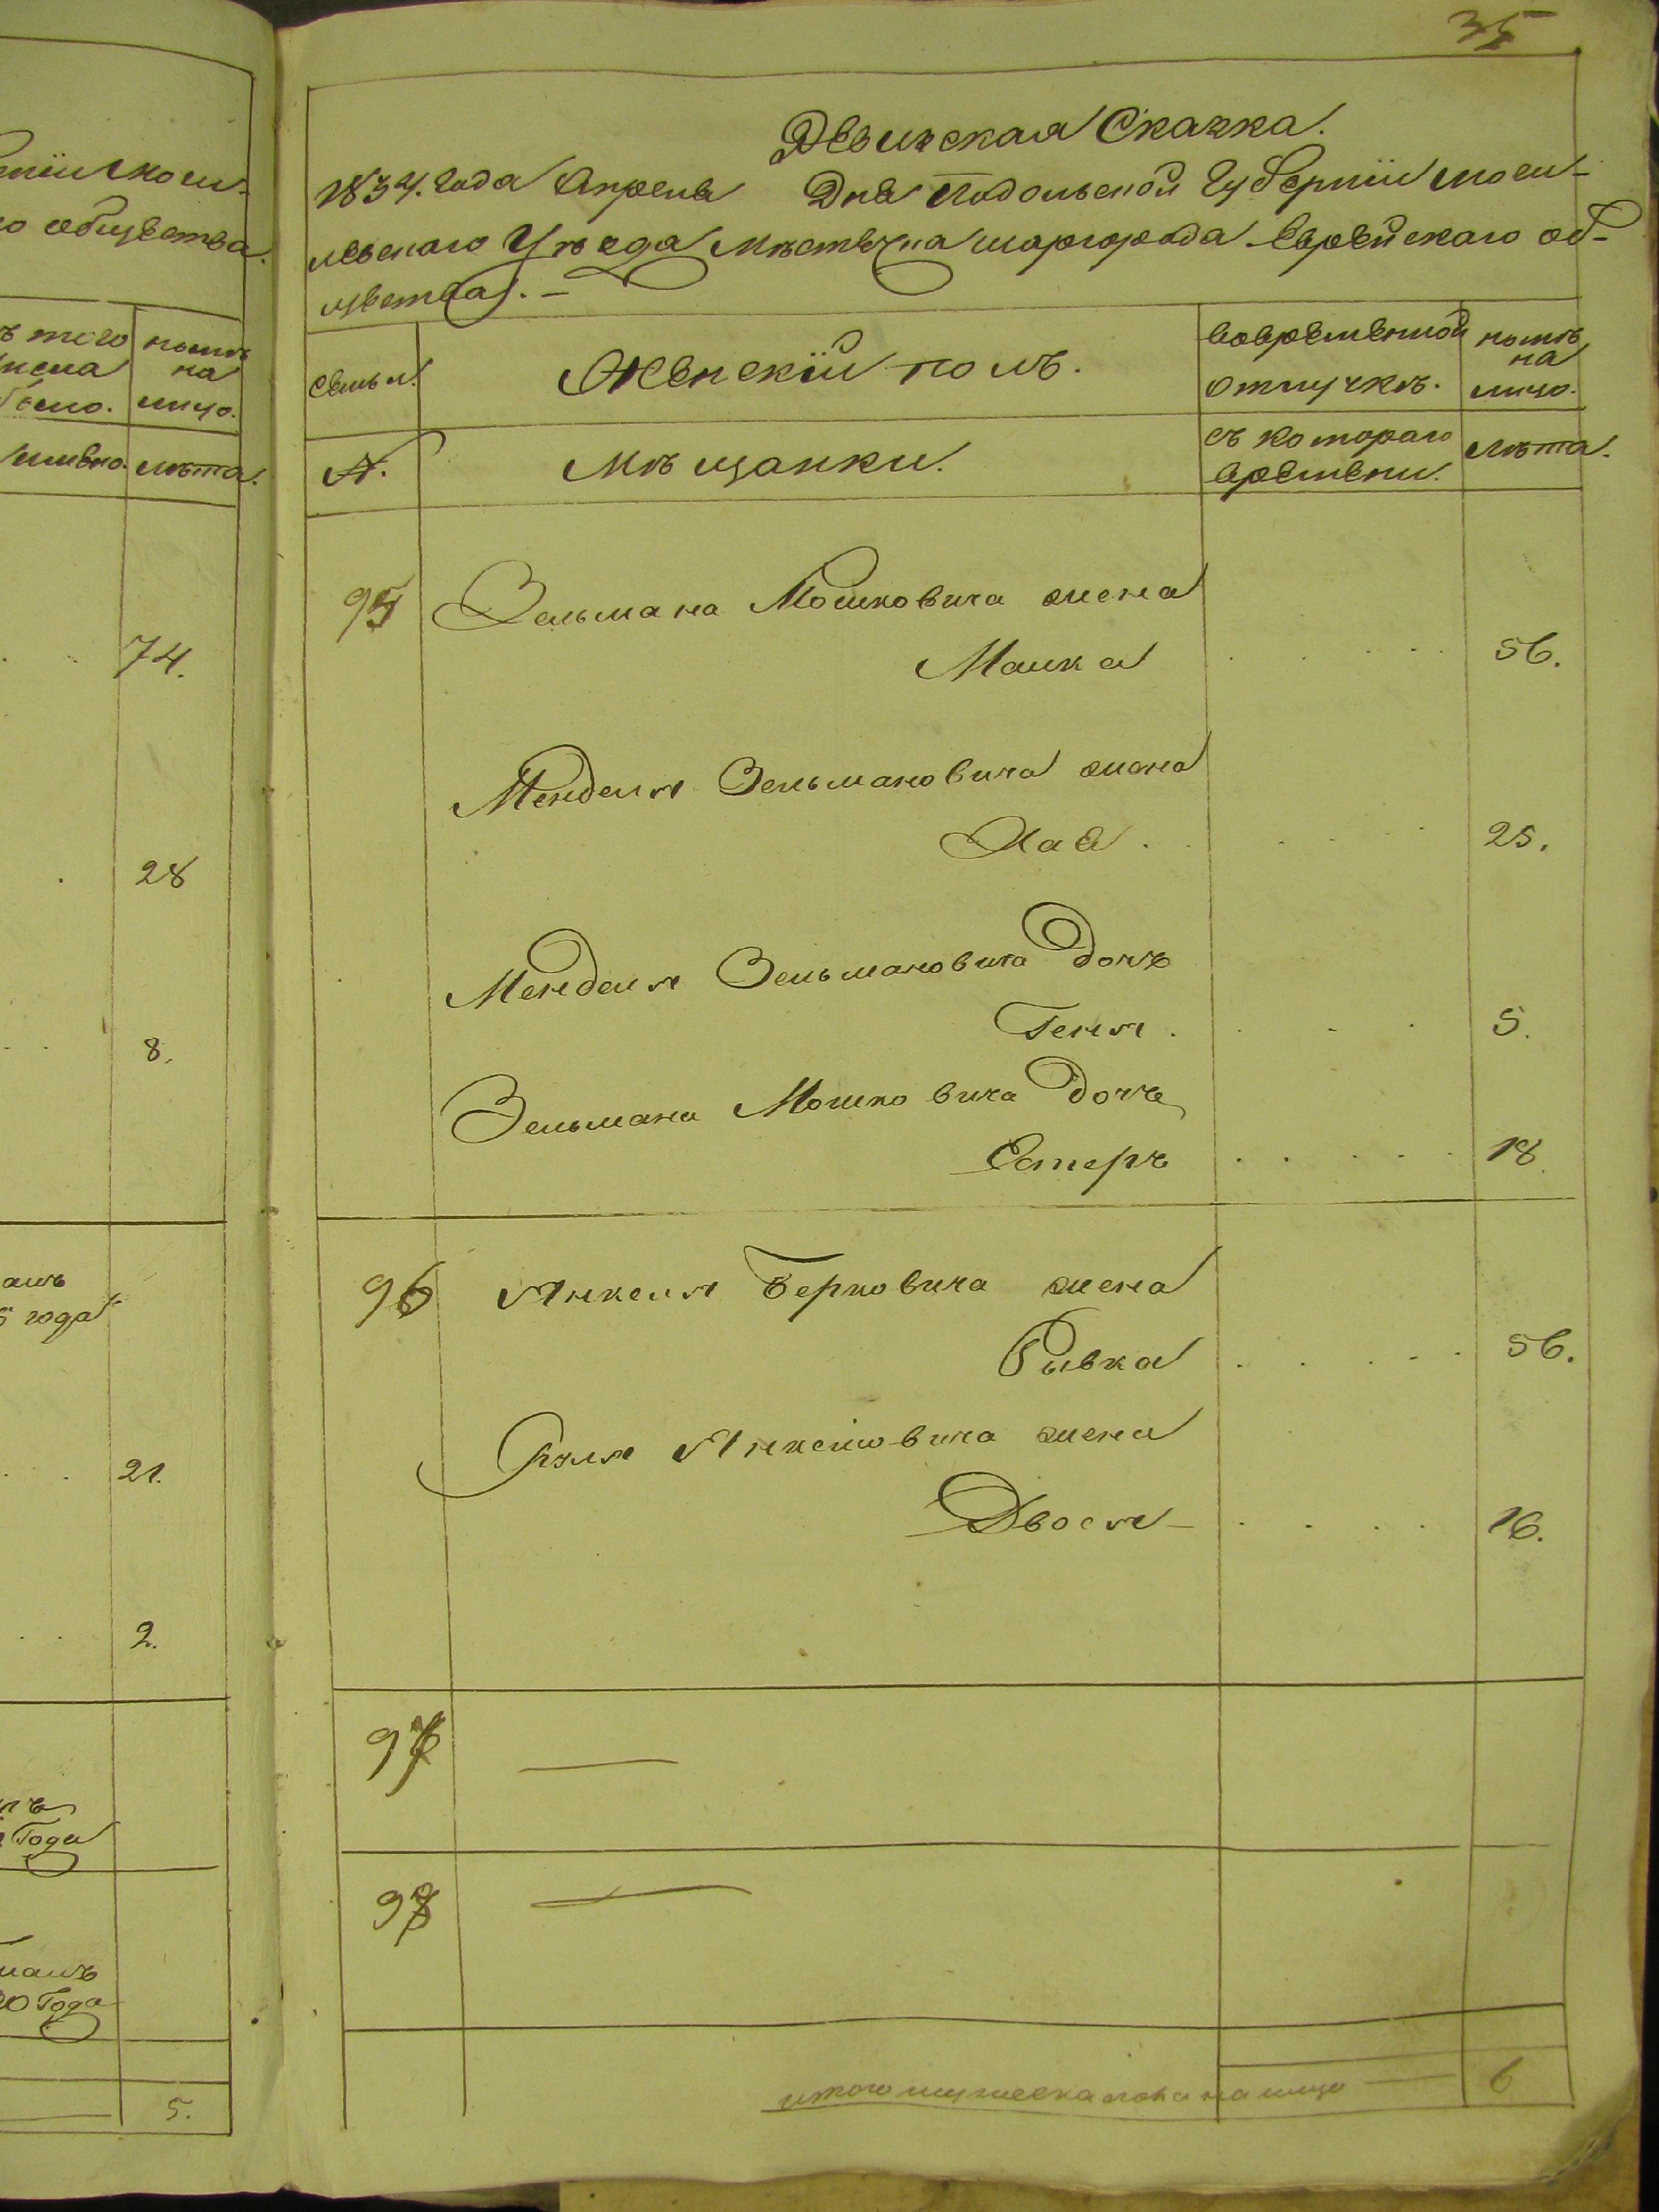 35
Ревизская Сказка.
1834. года Апреля Дня Подольской Губернiи моги-
левского Уѣзда Мѣстечка шаргорода Еврейскаго об-
щества. -
семьи.
Женскiй полъ.
вовременной
отлучкѣ.
нынѣ
на
лицо.
№.
Мѣщанки.
съ котораго
времени.
лѣта.
95 Зельмана Мошковича жена
Малка . . . . . 56.
Менделя Зельмановича жена
Хая . . . . 25.
Менделя Зельмановича дочь
Геня . . . . 5.
Зельмана Мошковича дочь
Естеръ . . . . . 18
96 Янкеля Берковича жена
Рывка . . . . . 56.
Янкелiовича жена
Двося . . . . 16.
97 —
98 —
итого на лицо — 6
общества.
того
числа
нынѣ
на
лицо.
лѣта.
74.
28
8.
года
21.
2.
Года
Года
5.